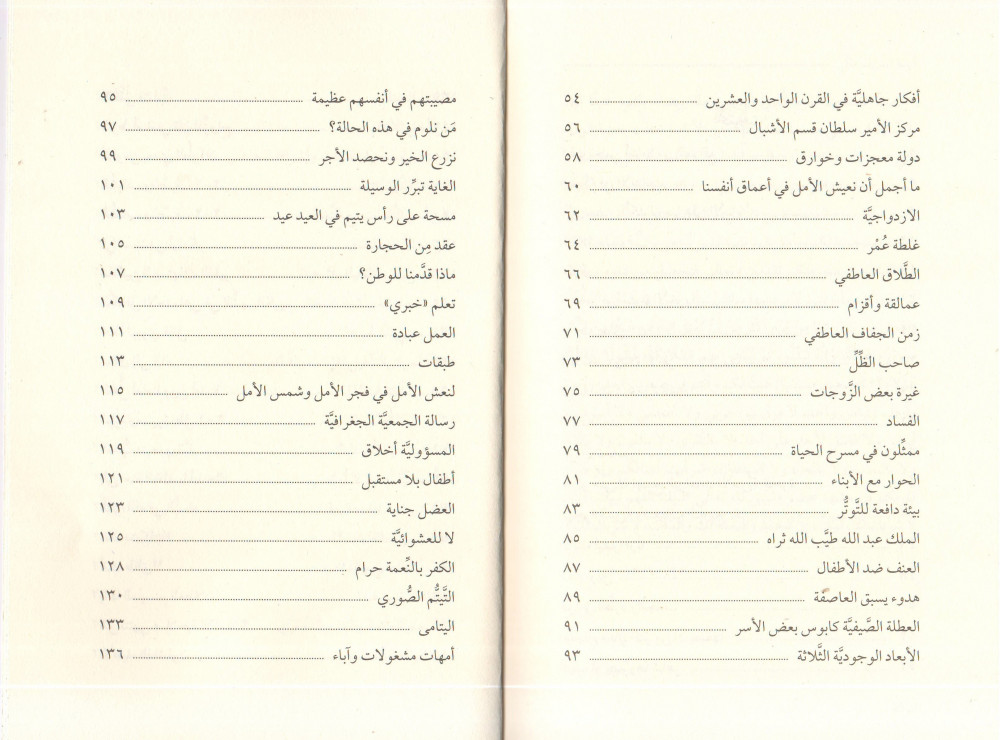 أفكار جاهليَّة في القرن الواحد والعشرين ٥٤
مركز الأمير سلطان قسم الأشبال ٥٦
دولة معجزات وخوارق ٥٨
ما أجمل أن نعيش الأمل في أعماق أنفسنا ٦٠
الازدواجيَّة ٦٢
غلطة عُمْر ٦٤
الطَّلاق العاطفي ٦٦
عمالقة وأقزام ٦٩
زمن الجفاف العاطفي ٧١
صاحب الظِّلِّ ٧٣
غيرة بعض الزَّوجات ٧٥
الفساد ٧٧
ممثِّلون في مسرح الحياة ٧٩
الحوار مع الأبناء ٨١
بيئة دافعة للتَّوتُّر ٨٣
الملك عبد الله طيَّب الله ثراه ٨٥
العنف ضد الأطفال ٨٧
هدوء يسبق العاصفة ٨٩
العطلة الصَّيفيَّة كابوس بعض الأسر ٩١
الأبعاد الوجوديَّة الثَّلاثة ٩٣
مصيبتهم في أنفسهم عظيمة ٩٥
مَن نلوم في هذه الحالة؟ ٩٧
نزرع الخير ونحصد الأجر ٩٩
الغاية تبرِّر الوسيلة ١٠١
مسحة على رأس يتيم في العيد عيد ١٠٣
عقد مِن الحجارة ١٠٥
ماذا قدَّمنا للوطن؟ ١٠٧
تعلم «خبري» ١٠٩
العمل عبادة ١١١
طبقات ١١٣
لنعش الأمل في فجر الأمل وشمس الأمل ١١٥
رسالة الجمعيَّة الجغرافيَّة ١١٧
المسؤوليَّة أخلاق ١١٩
أطفال بلا مستقبل ١٢١
العضل جناية ١٢٣
لا للعشوائيَّة ١٢٥
الكفر بالنِّعمة حرام ١٢٨
التَّيتُّم الصُّوري ١٣٠
اليتامى ١٣٣
أمهات مشغولات وآباء ١٣٦